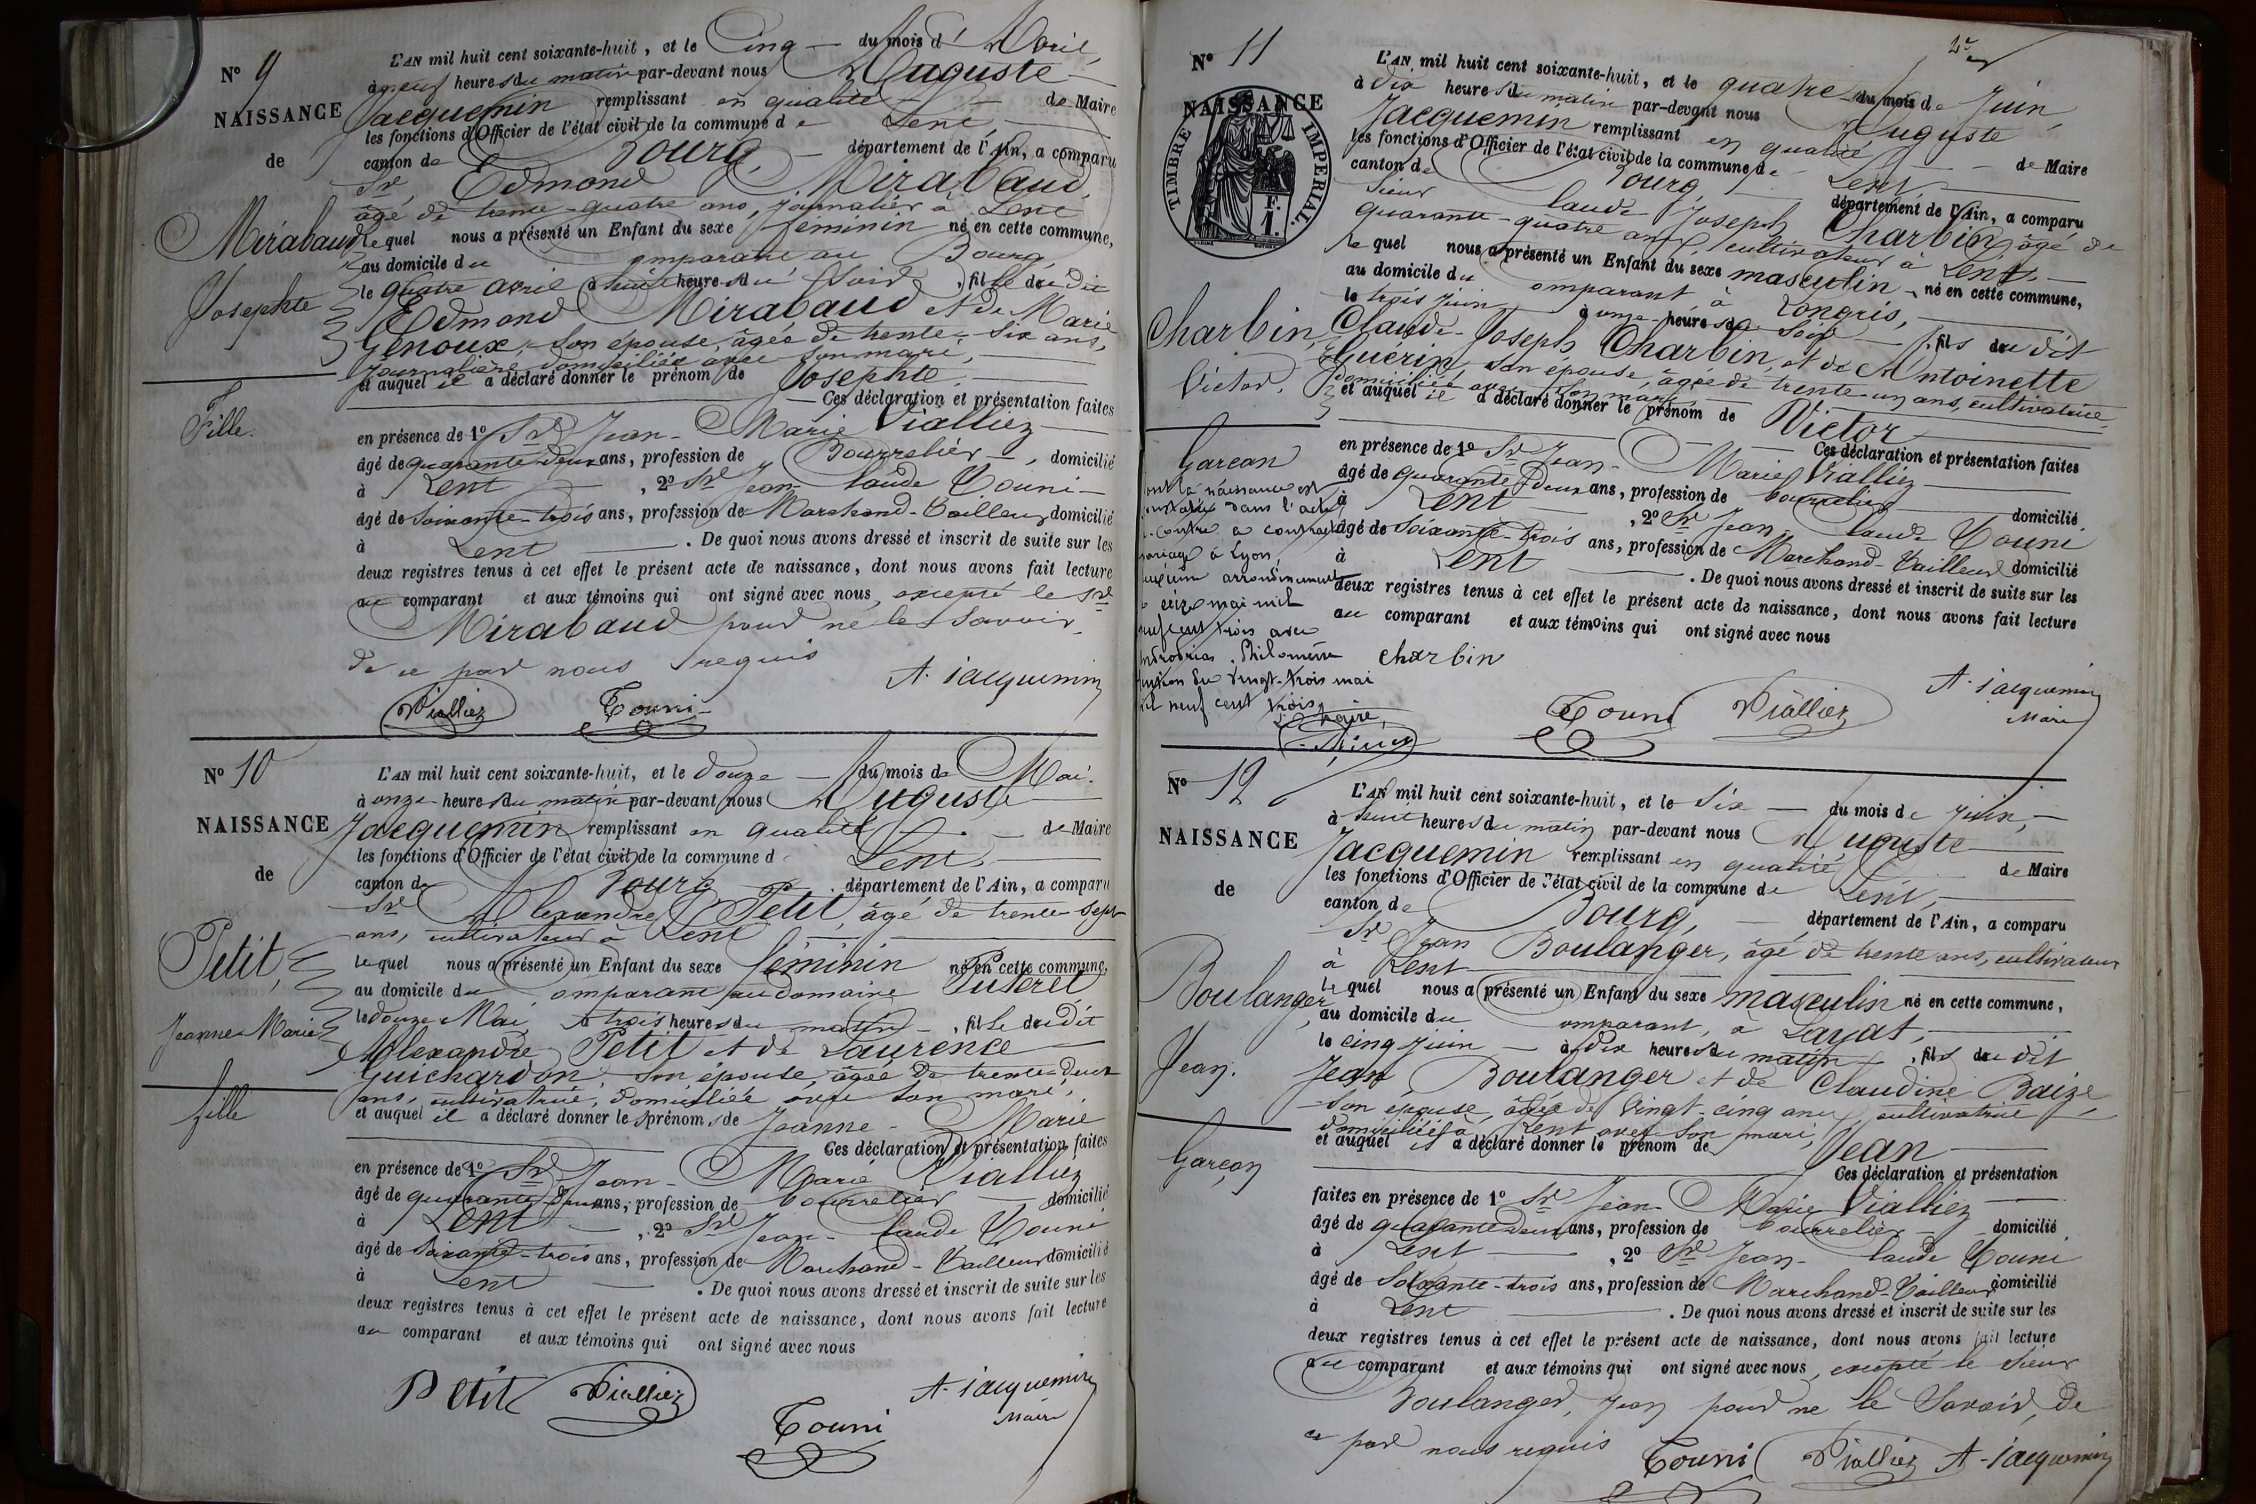 N° 9
NAISSANCE
de
Mirabaud
Josephte
Fille.
L'AN mil huit cent soixante-huit, et le Cinq — du mois d'Avril,
à neuf heures du matin par-devant nous Auguste
Jacquemin remplissant en qualité — de Maire
les fonctions d'Officier de l'état civil de la commune de Lent,
canton de Bourg, — département de l'Ain, a comparu
Sr Edmond Mirabaud,
âgé de trente-quatre ans, journalier à Lent
lequel nous a présenté un Enfant du sexe féminin né en cette commune,
au domicile du Comparant au Bourg,
le quatre avril à huit heures du soir, fille du dit
Edmond Mirabaud et de Marie
Genoux, son épouse, âgée de trente-six ans,
journalière domiciliée avec son mari,
et auquel il a déclaré donner le prénom de Josephte.
— Ces déclaration et présentation faites
en présence de 1° Sr Jean-Marie Vialliez
âgé de quarante-deux ans, profession de Bourrelier —, domicilié
à Lent —, 2° Sr Jean-Claude Touni —
âgé de soixante-trois ans, profession de Marchand-Tailleur domicilié
à Lent — . De quoi nous avons dressé et inscrit de suite sur les
deux registres tenus à cet effet le présent acte de naissance, dont nous avons fait lecture
au comparant et aux témoins qui ont signé avec nous, excepté le Sr
Mirabaud pour ne le savoir
de ce par nous requis
A. Jacquemin
Vialliez Touni
N° 10
NAISSANCE
de
Petit,
Jeanne-Marie
fille
L'AN mil huit cent soixante-huit, et le douze — du mois de Mai.
à onze heures du matin par-devant nous Auguste
Jacquemin remplissant en qualité — de Maire
les fonctions d'Officier de l'état civil de la commune d Lent,
canton de Bourg . département de l'Ain, a comparu
Sr Alexandre Petit, âgé de trente-sept
ans, cultivateur à Lent
lequel nous a présenté un Enfant du sexe féminin né en cette commune,
au domicile du Comparant au domaine Puteret
le douze Mai à trois heures du matin —, fille du dit
Alexandre Petit et de Laurence
Guichardon, son épouse, âgée de trente-deux
ans, cultivatrice, domiciliée avec son mari,
et auquel il a déclaré donner les prénoms de Jeanne-Marie
Ces déclaration et présentation faites
en présence de 1° Sr Jean-Marie Vialliez
âgé de quarante-deux ans, profession de bourrelier — domicilié
à Lent —, 2° Sr Jean-Claude Touni
âgé de soixante-trois ans, profession de Marchand-Tailleur domicilié
à Lent — . De quoi nous avons dressé et inscrit de suite sur les
deux registres tenus à cet effet le présent acte de naissance, dont nous avons fait lecture
au comparant et aux témoins qui ont signé avec nous
Petit Vialliez A. Jacquemin
Touni Maire
N° 11
NAISSANCE
TIMBRE IMPERIAL.
F.
1.
Charbin,
Victor.
Garçon
dont la naissance est
constatée dans l'acte
ci-contre a contracté
mariage à Lyon,
arrondissement
le seize mai mil
neuf cent trois avec
Philomène
du vingt-trois mai
mil neuf cent trois,
Le Maire,
2e
L'AN mil huit cent soixante-huit, et le quatre — du mois de Juin,
à dix heures du matin par-devant nous Auguste
Jacquemin remplissant en qualité — de Maire
les fonctions d'Officier de l'état civil de la commune de Lent,
canton de Bourg département de l'Ain, a comparu
Sieur Claude-Joseph Charbin, âgé de
quarante-quatre ans, cultivateur à Lent,
lequel nous a présenté un Enfant du sexe masculin, né en cette commune,
au domicile du Comparant, à Longris,
le trois Juin à onze heures du soir — , fils du dit
Claude-Joseph Charbin, et de Antoinette
Guérin, son épouse, âgée de trente-un ans, cultivatrice
domiciliée avec son mari,
et auquel il a déclaré donner le prénom de Victor
Ces déclaration et présentation faites
en présence de 1° Sr Jean-Marie Vialliez
âgé de quarante-deux ans, profession de bourrelier domicilié
à Lent, 2° Sr Jean-Claude Touni
âgé de soixante-trois ans, profession de Marchand-Tailleur domicilié
à Lent — . De quoi nous avons dressé et inscrit de suite sur les
deux registres tenus à cet effet le présent acte de naissance, dont nous avons fait lecture
au comparant et aux témoins qui ont signé avec nous
Charbin
Touni Vialliez A. Jacquemin
Maire
N° 12
NAISSANCE
de
Boulanger,
Jean.
Garçon
L'AN mil huit cent soixante-huit, et le six — du mois de Juin, —
à huit heures du matin par-devant nous Auguste
Jacquemin remplissant en qualité — de Maire
les fonctions d'Officier de l'état civil de la commune de Lent,
canton de Bourg, — département de l'Ain, a comparu
Sr Jean Boulanger, âgé de trente ans, cultivateur
à Lent
lequel nous a présenté un Enfant du sexe masculin né en cette commune,
au domicile du Comparant, à Layat,
le cinq Juin — à dix heures du matin, fils du dit
Jean Boulanger et de Claudine Baize,
son épouse, âgée de vingt-cinq ans, cultivatrice
domiciliée à Lent avec son mari,
et auquel il a déclaré donner le prénom de Jean
Ces déclaration et présentation
faites en présence de 1° Sr Jean-Marie Vialliez
âgé de quarante-deux ans, profession de bourrelier — domicilié
à Lent, 2° Sr Jean-Claude Touni
âgé de soixante-trois ans, profession de Marchand-Tailleur domicilié
à Lent — . De quoi nous avons dressé et inscrit de suite sur les
deux registres tenus à cet effet le présent acte de naissance, dont nous avons fait lecture
au comparant et aux témoins qui ont signé avec nous, excepté le sieur
Boulanger, Jean pour ne le savoir, de
ce par nous requis Touni Vialliez A. Jacquemin